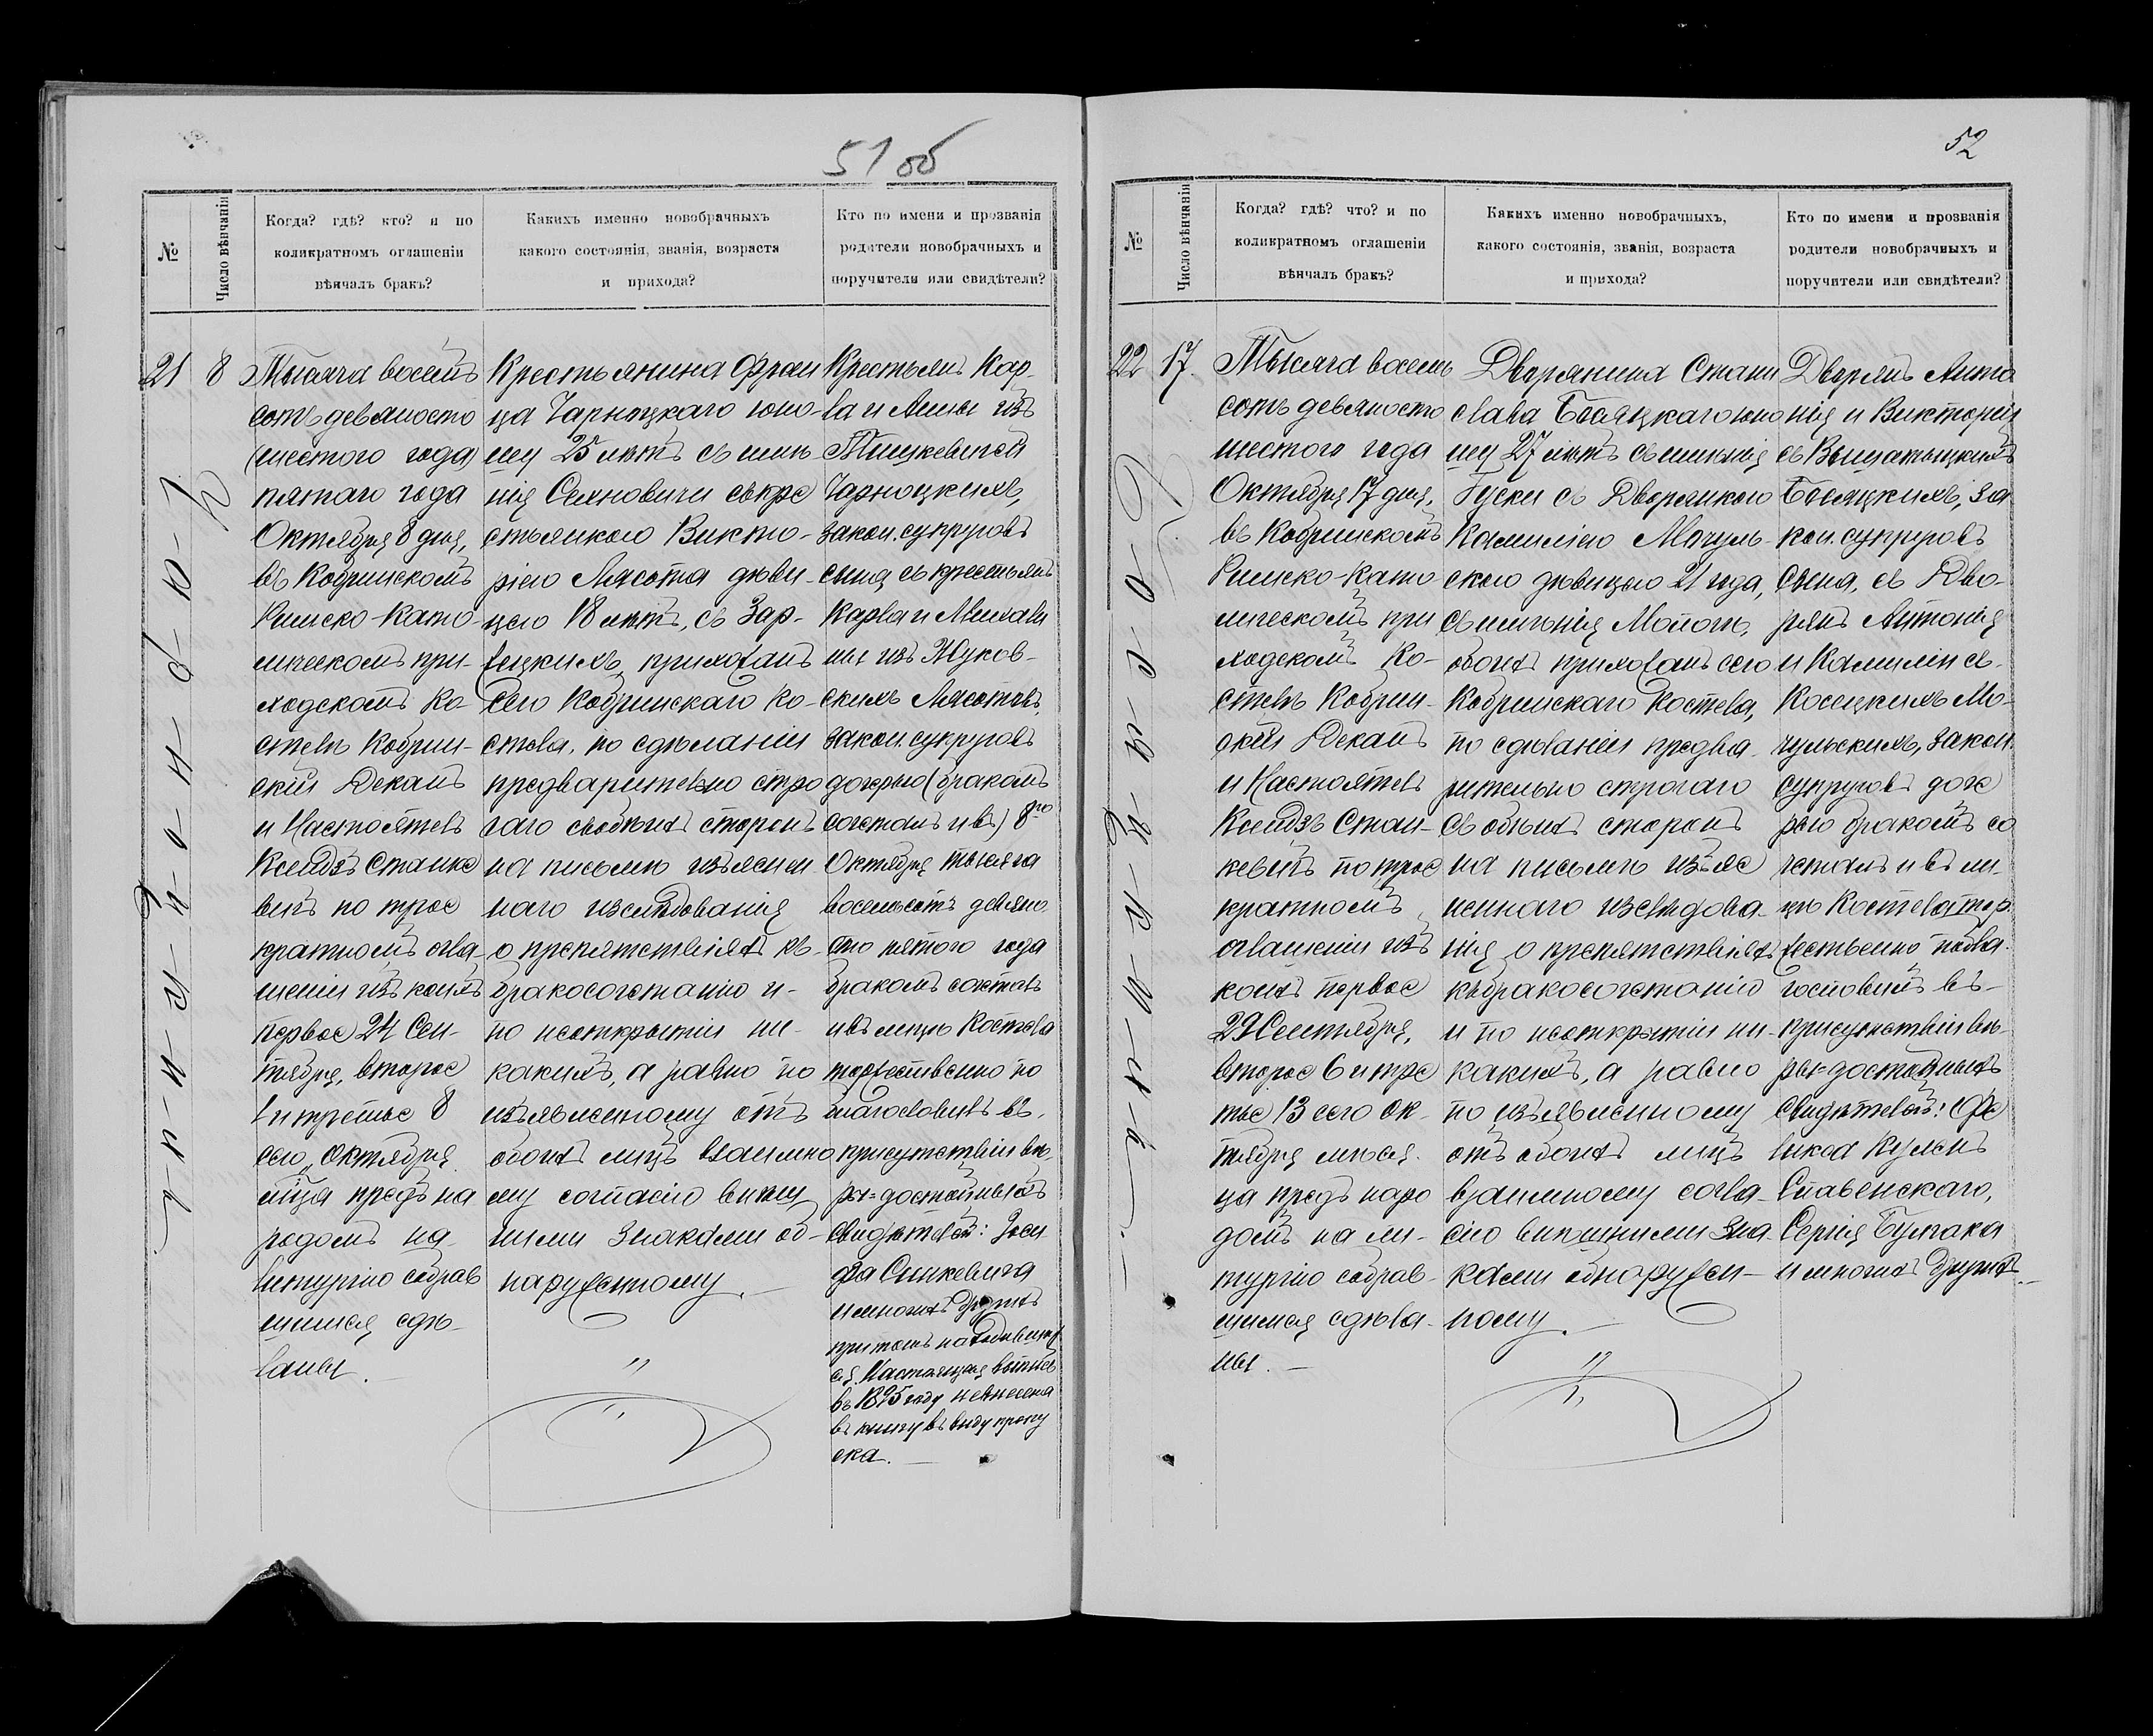 51 об
№
Число вѣнчанія
Когда? гдѣ? кто? и по
коликратномъ оглашеніи
вѣнчалъ бракъ?
Какихъ именно новобрачныхъ
какого состоянія, званія, возраста
и прихода?
Кто по имени и прозванія
родители новобрачныхъ и
поручители или свидѣтели?
21
8
Тысяча восемь
сотъ девяносто
(шестого года)
пятаго года
Октября 8 дня,
въ Кобринскомъ
Римско-Като-
лическомъ при-
ходскомъ Ко-
стелѣ Кобрин-
скій Деканъ
и Настоятель
Ксендзъ Станке
вичъ по трое
кратномъ огла-
шеніи изъ коихъ
первое 24 Сен-
тября, второе
1 и третье 8
сего Октября
предъ на
родомъ на
литургію собрав
шимся сдѣ-
ланы.
Крестьянина Фран
ца Чарноцкаго юно-
шу 25 лѣтъ съ имѣ
нія Сехновичи съ кре
стьянкою Викто-
ріею Лясота дѣви-
цею 18 лѣтъ, съ Зар-
прихожанъ
сего Кобринскаго Ко-
стела, по сдѣланіи
предварительно стро
гаго съ обѣихъ сторонъ
на письмѣ изъясни
наго изслѣдованія
о препятствіяхъ къ
бракосочетанію и
по неоткрытіи ни-
какихъ, а равно по
изъявленному отъ
обоихъ лицъ взаимно
му согласію внѣш
ними знаками об-
наруженному.
Крестьянъ Кар
ла и Анны изъ
Тишкевичей
Чарноцкихъ,
закон. супруговъ
сына съ крестьян
Карла и Михали
ны изъ Жуков-
скихъ Лясотовъ,
закон. супруговъ
дочерью (бракомъ
сочеталъ и въ) 8го
Октября тысяча
восемьсотъ девяно
сто пятого года
бракомъ сочеталъ
и въ лицѣ Костела
торжественно по
благословилъ въ
присутствіи вѣ-
ры-достойныхъ
свидѣтелей: Іоси
фа Синкевича
и многихъ другихъ
притомъ находивших
ся. Настоящая выпись
въ 1895 году невнесена
въ книгу въ виду пропу
ска.
52
№
Число вѣнчанія
Когда? гдѣ? что? и по
коликратномъ оглашеніи
вѣнчалъ бракъ?
Какихъ именно новобрачныхъ,
какого состоянія, званія, возраста
и прихода?
Кто по имени и прозванія
родители новобрачныхъ и
поручители или свидѣтели?
22
17.
Тысяча восемь
сотъ девяносто
шестого года
Октября 17 дня,
въ Кобринскомъ
Римско-Като
лическомъ при
ходскомъ Ко-
стелѣ Кобрин-
скій Деканъ
и Настоятель
Ксендзъ Стан-
кевичъ по трое
кратномъ
оглашеніи изъ
коихъ первое
29 Сентября,
второе 6 и тре
тье 13 сего Ок-
тября мѣся
ца предъ наро
домъ на ли-
тургію собрав-
шимся сдѣла-
ны.
Дворянина Стани
слава юно
шу 27 лѣтъ съ имѣнія
Гуски съ Дворянкою
Камилліею Мачуль-
скою дѣвицею 21 года,
съ имѣнія
обоихъ прихожанъ сего
Кобринскаго Костела,
по сдѣланіи предва-
рительно строгаго
съ обѣихъ сторонъ
на письмѣ изъяс
неннаго изслѣдова-
нія о препятствіяхъ
къ бракосочетанію
и по неоткрытіи ни-
какихъ, а равно
по изъявленному
отъ обоихъ лицъ
взаимному согла-
сію внѣшними зна-
ками обнаружен-
ному.
Дворянъ Анто
нія и Викторіи
съ
за
кон. супруговъ
сына, съ Дво-
рянъ Антонія
и Камиліи съ
Косецкихъ Ма-
чульскихъ, закон.
супруговъ доче
рью бракомъ со
четалъ и въ ли-
цѣ Костела тор
жественно побла
гословилъ въ
присутствіи вѣ-
ры-достойныхъ
свидѣтелей: Фе
ликса
Славенскаго,
Сергія Булгака
и многихъ другихъ.